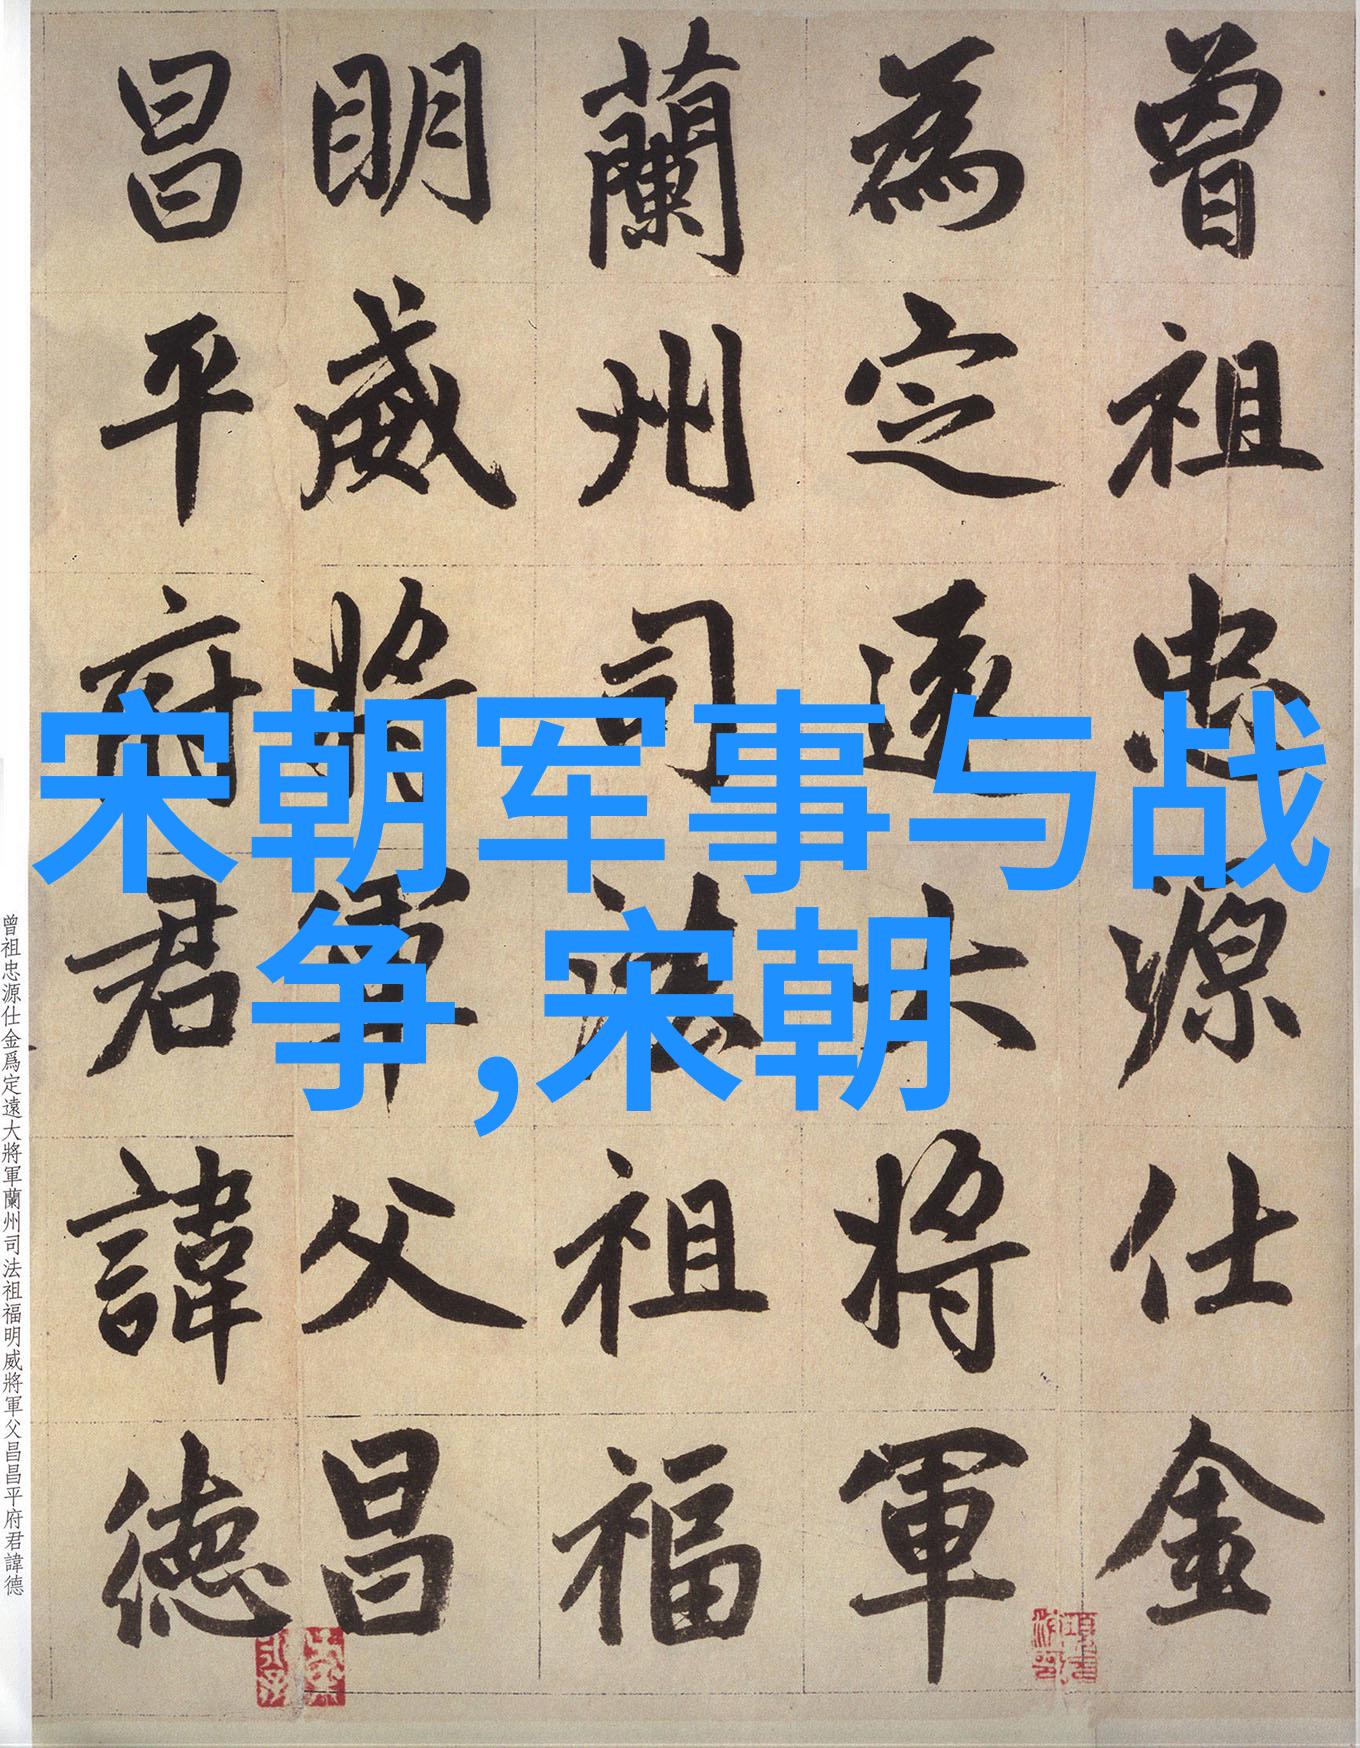 曾祖忠源仕金
為定遠大將軍
蘭州司法祖福
明威將軍父昌
昌平府君諱德
宋朝军事与战
争,宋朝
曾祖忠源仕金爲定遠大將軍蘭州司法祖福明威將軍父昌昌平府君諱德